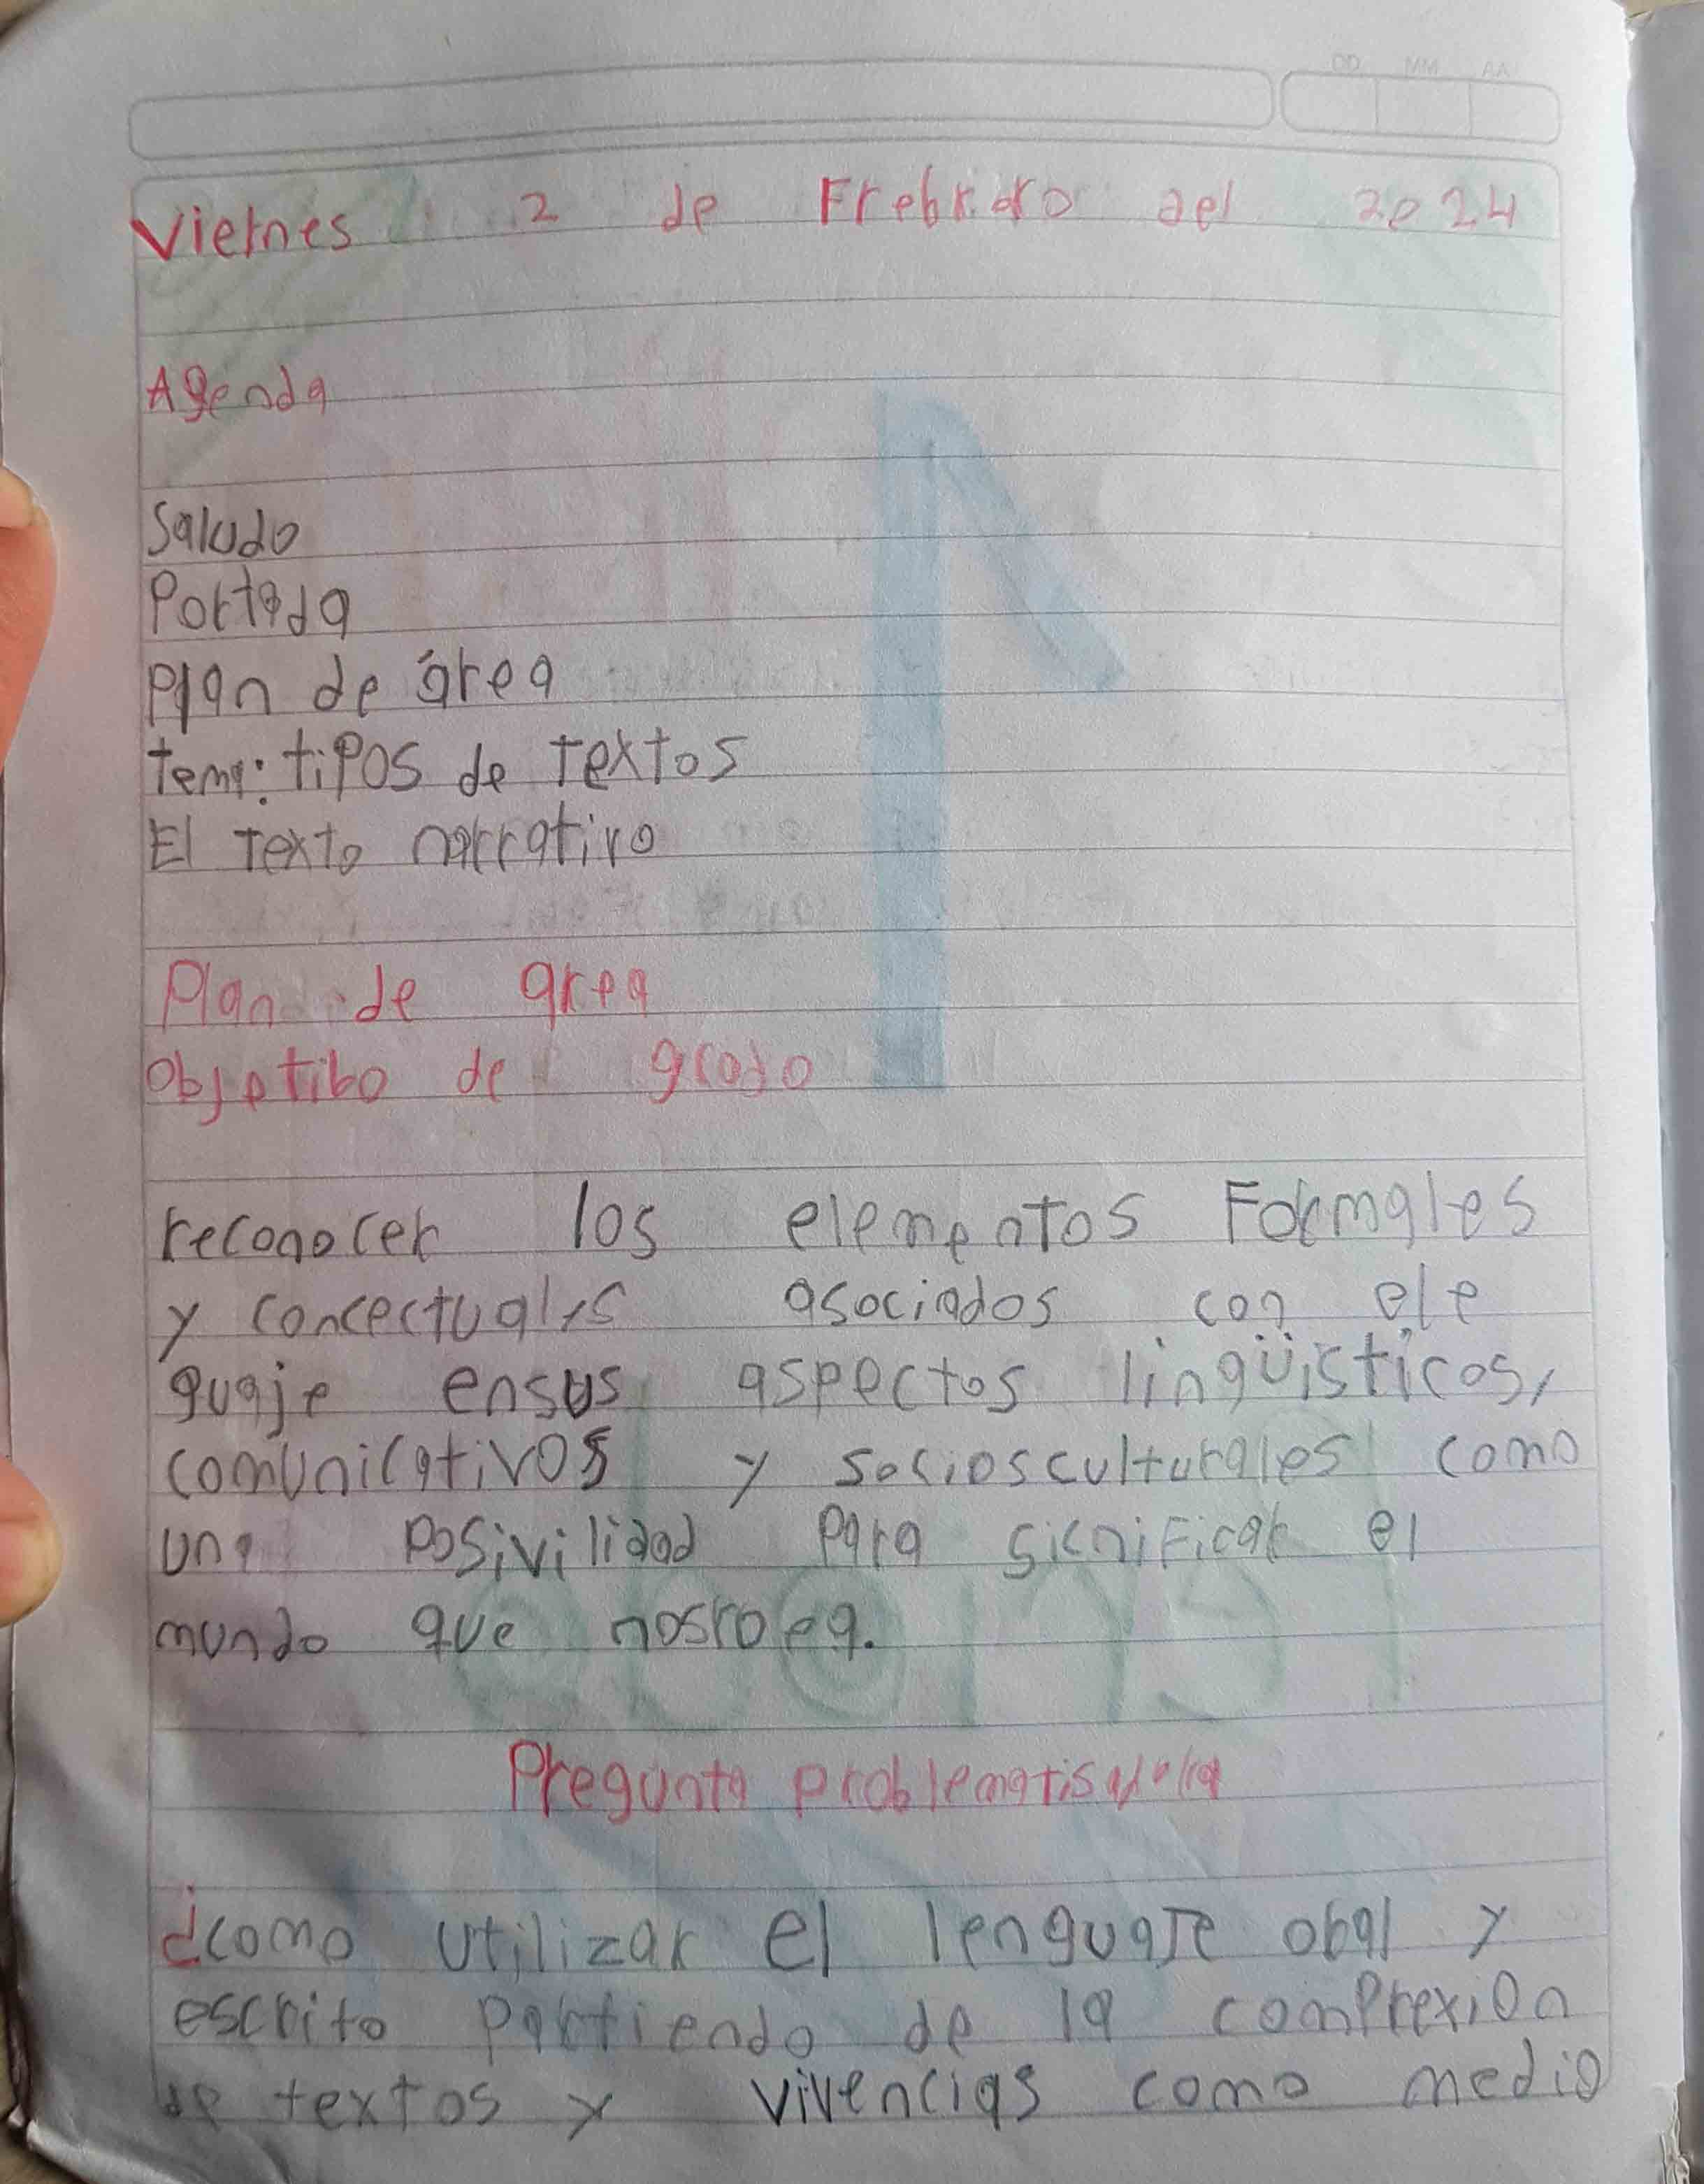 Viernes 2 de Frebrero del 2024
Agenda
Saludo
Portada
Plan de área
tema: tipos de textos
El texto narrativo
Plan de area
Objetibo de grado
reconocer los elementos Formales
y concectuales asociados con ele
guaje ensus aspectos lingüisticos,
comunicativos y sociosculturales como
una posivilidad para sicnificar el
mundo que nosroea.
Pregunta problematisadora
¿como utilizar el lenguaje obal y
escrito partiendo de la comprexion
de textos y vivencias como medio
DD MM AA